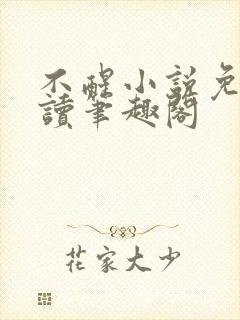 不醒小説免
讀筆趣閣
花家大少